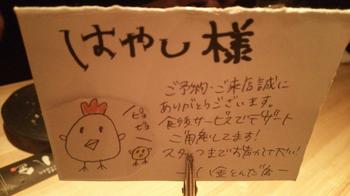 はやし様
ご予約・ご来店誠に
ありがとうございます。
食後サービスでデザート
ご用意してます!
スタッフまでお声かけて下さい!
ピヨ
ピヨ